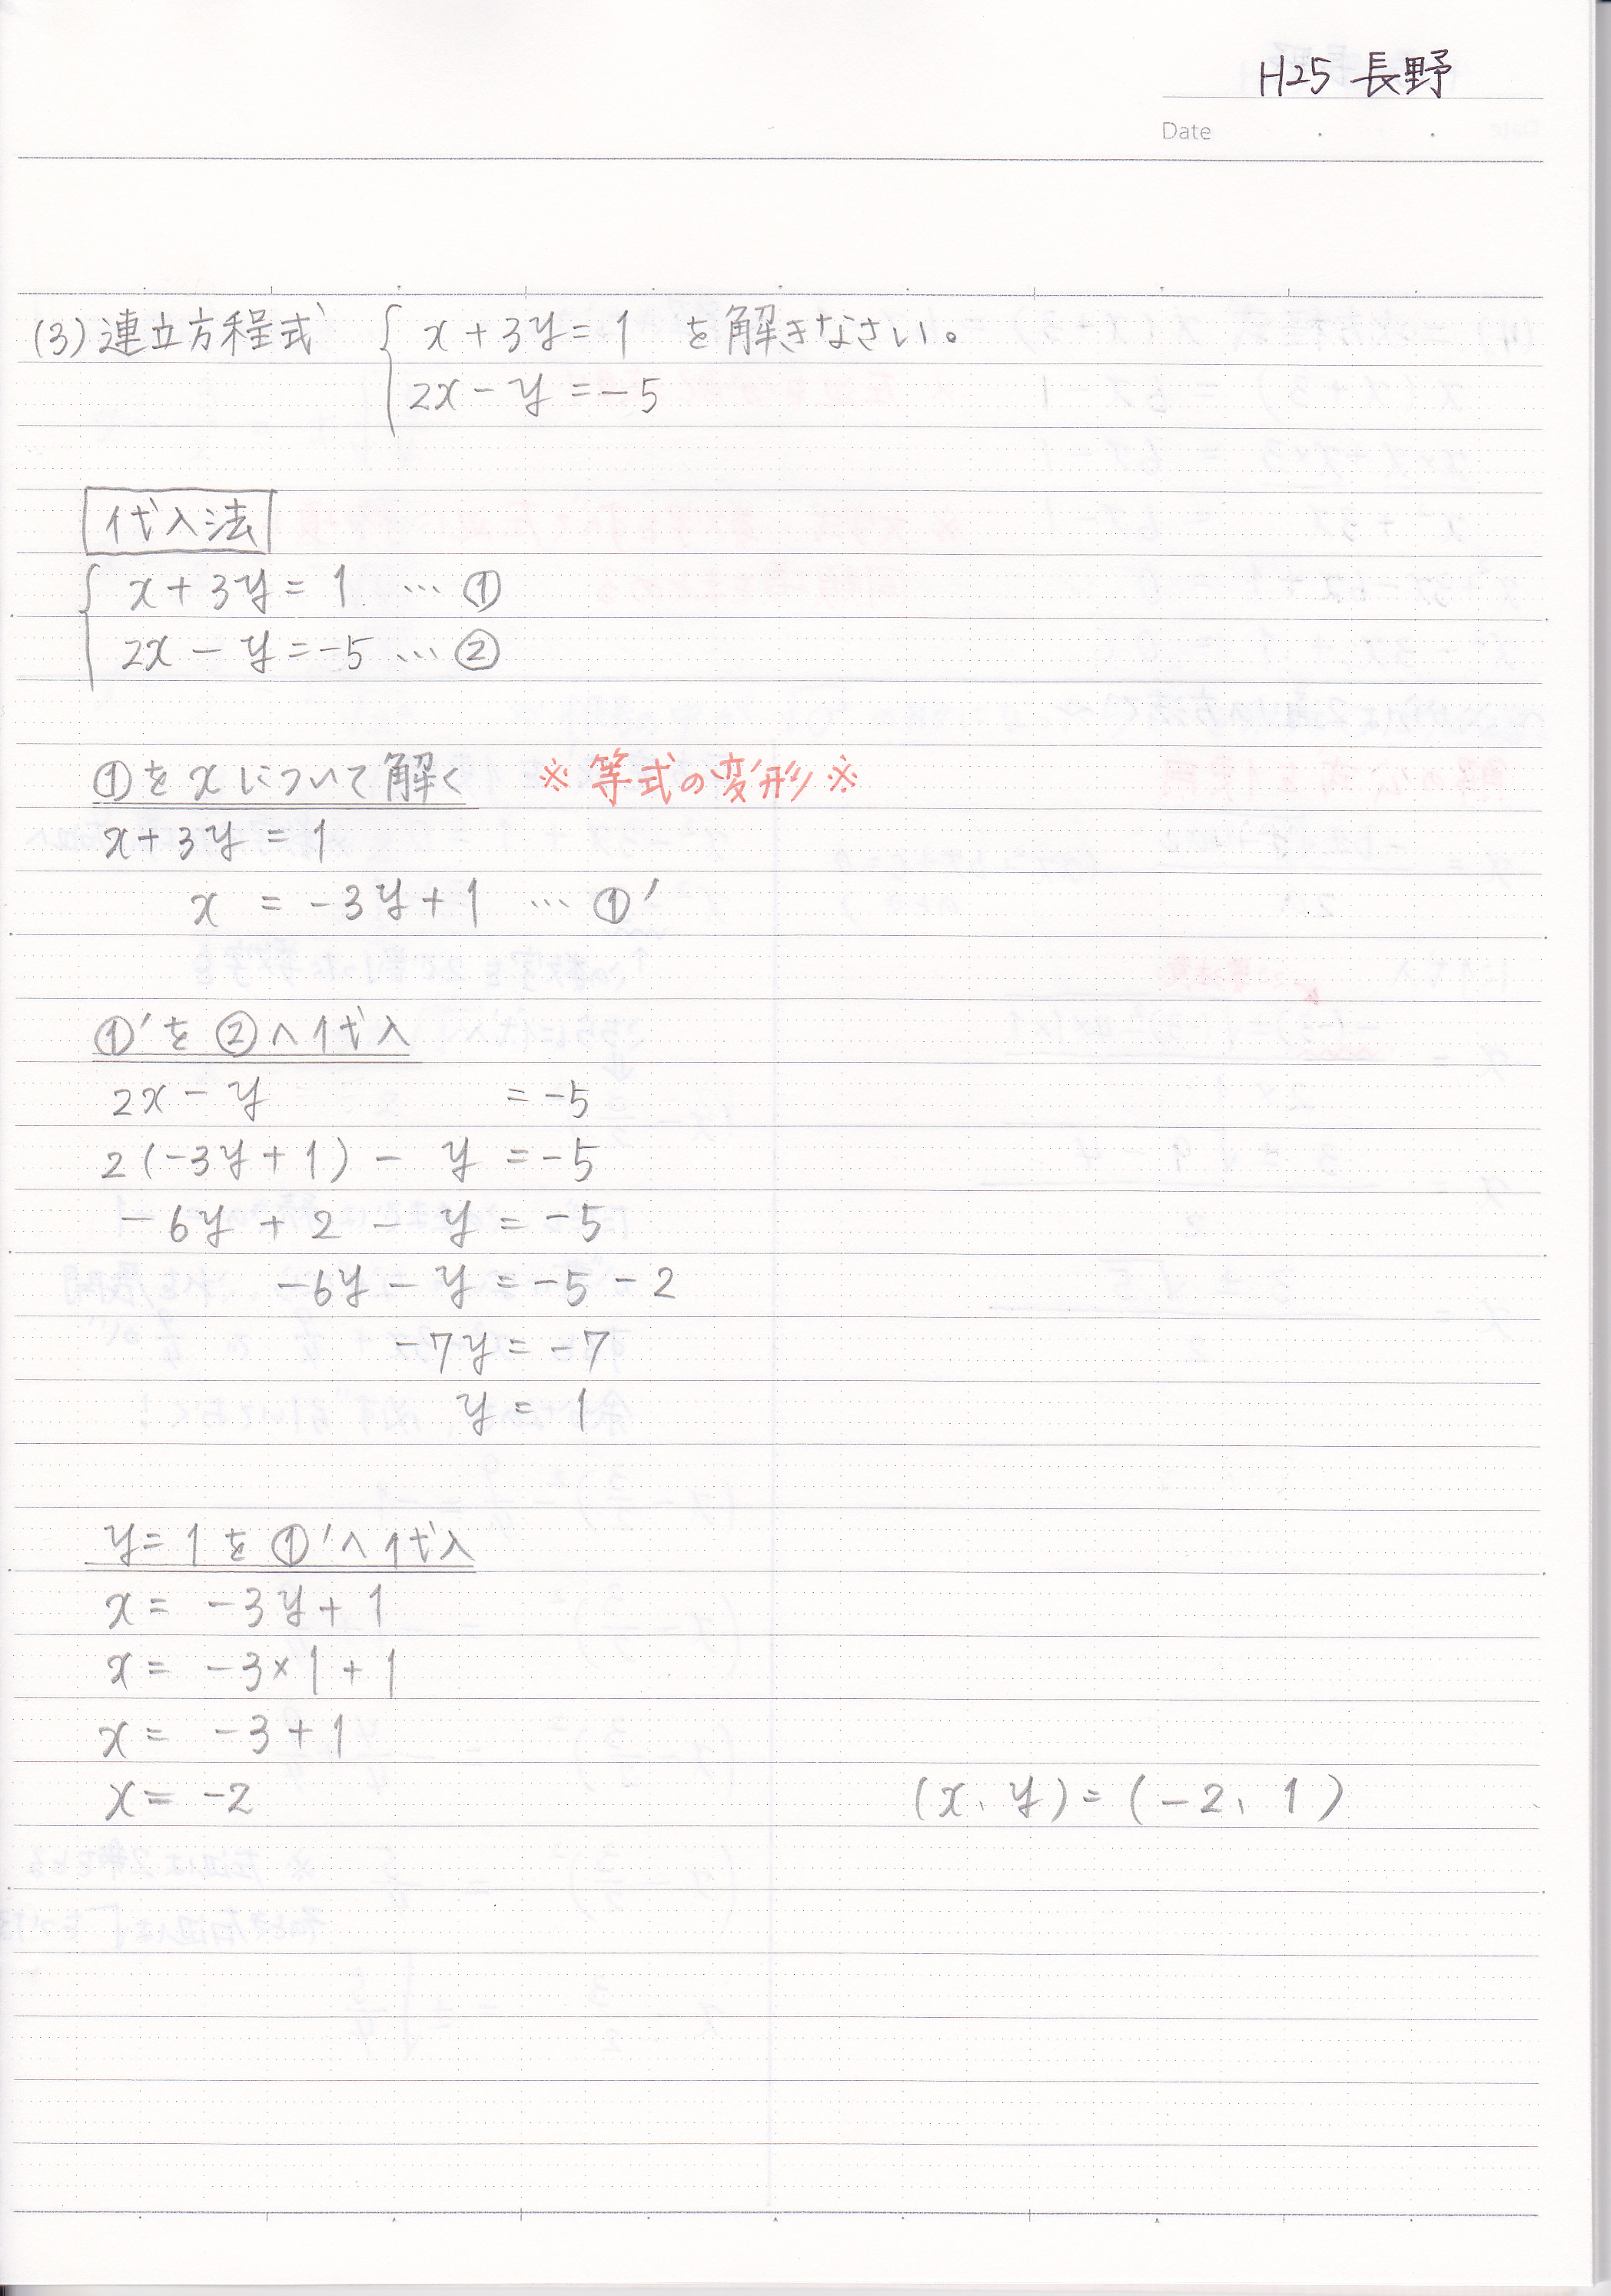 H25 長野
Date . .
(3) 連立方程式 { x + 3y = 1 を解きなさい。
2x - y = -5
代入法
{ x + 3y = 1 … ①
2x - y = -5 … ②
①を x について解く ※ 等式の変形 ※
x + 3y = 1
x = -3y + 1 … ①'
①'を②へ代入
2x - y = -5
2(-3y + 1) - y = -5
-6y + 2 - y = -5
-6y - y = -5 - 2
-7y = -7
y = 1
y = 1 を ①'へ代入
x = -3y + 1
x = -3×1 + 1
x = -3 + 1
x = -2 (x、y) = (-2、1)